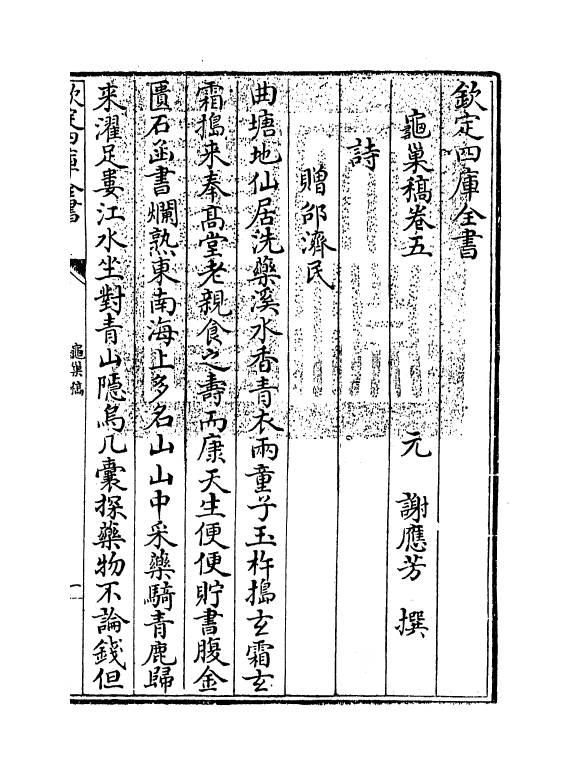 欽定四庫全書
龜巢稿卷五
元 謝應芳 撰
詩
贈邵濟民
曲塘地仙居洗藥溪水香青衣兩童子玉杵搗玄霜玄
霜搗來奉高堂老親食之壽而康天生便便貯書腹金
匱石函書爛熟東南海上多名山山中采藥騎青鹿歸
來濯足婁江水坐對青山隱烏几囊探藥物不論錢但
欽定四庫全書
龜巢稿
一